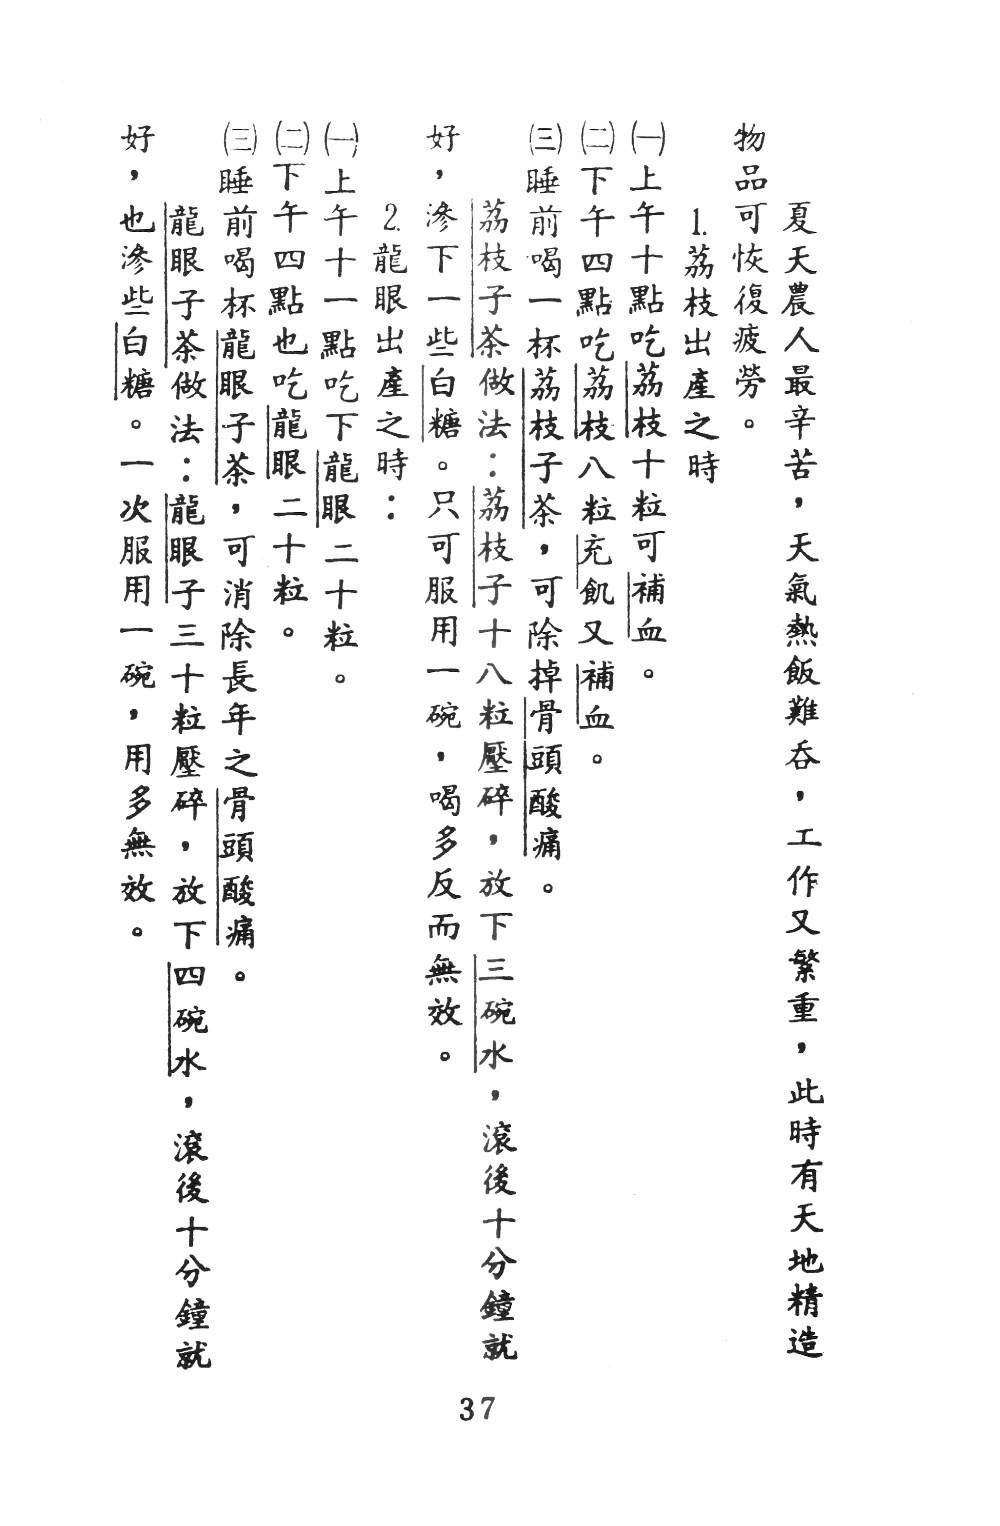 夏天農人最辛苦，天氣熱飯難吞，工作又繁重，此時有天地精造
物品可恢復疲勞。
1.荔枝出產之時
㈠上午十點吃荔枝十粒可補血。
㈡下午四點吃荔枝八粒充飢又補血。
㈢睡前喝一杯荔枝子茶，可除掉骨頭酸痛。
荔枝子茶做法：荔枝子十八粒壓碎，放下三碗水，滾後十分鐘就
好，滲下一些白糖。只可服用一碗，喝多反而無效。
2.龍眼出產之時：
㈠上午十一點吃下龍眼二十粒。
㈡下午四點也吃龍眼二十粒。
㈢睡前喝杯龍眼子茶，可消除長年之骨頭酸痛。
龍眼子茶做法：龍眼子三十粒壓碎，放下四碗水，滾後十分鐘就
好，也滲些白糖。一次服用一碗，用多無效。
37